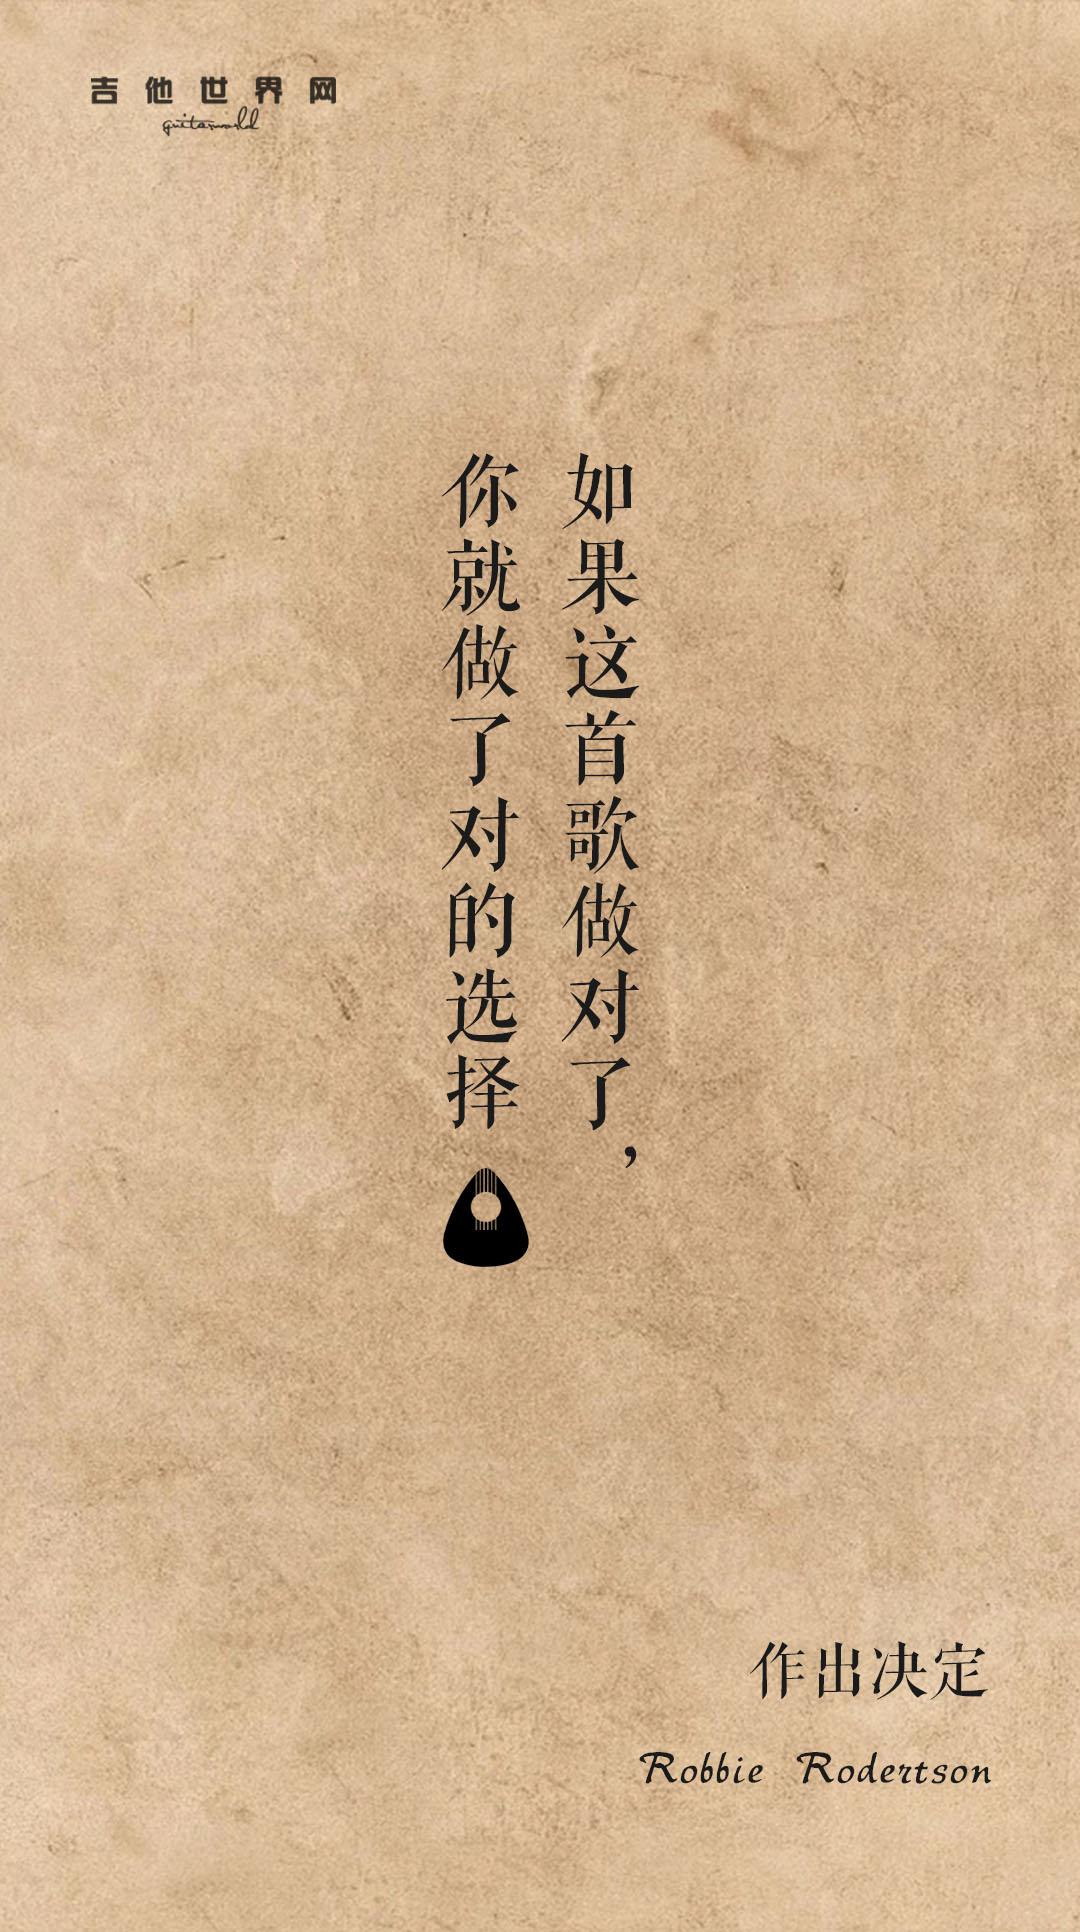 吉他世界网
guitarworld
如果这首歌做对了，
你就做了对的选择
作出决定
Robbie Rodertson